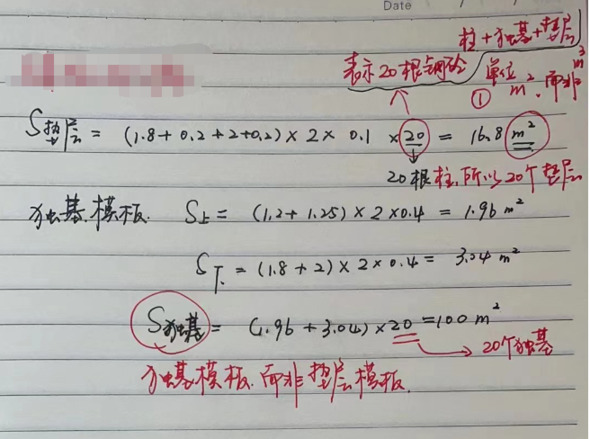 Date
柱+独基+垫层
表示20根钢砼
单位
① m²,而非m³
S垫层 = (1.8+0.2+2+0.2)×2×0.1×20 = 16.8 m²
20根柱,所以20个垫层
独基模板. S上 = (1.2+1.25)×2×0.4 = 1.96 m²
S下. = (1.8+2)×2×0.4= 3.04 m²
S独基 = (1.96+3.04)×20=100 m²
20个独基
独基模板.而非垫层模板.